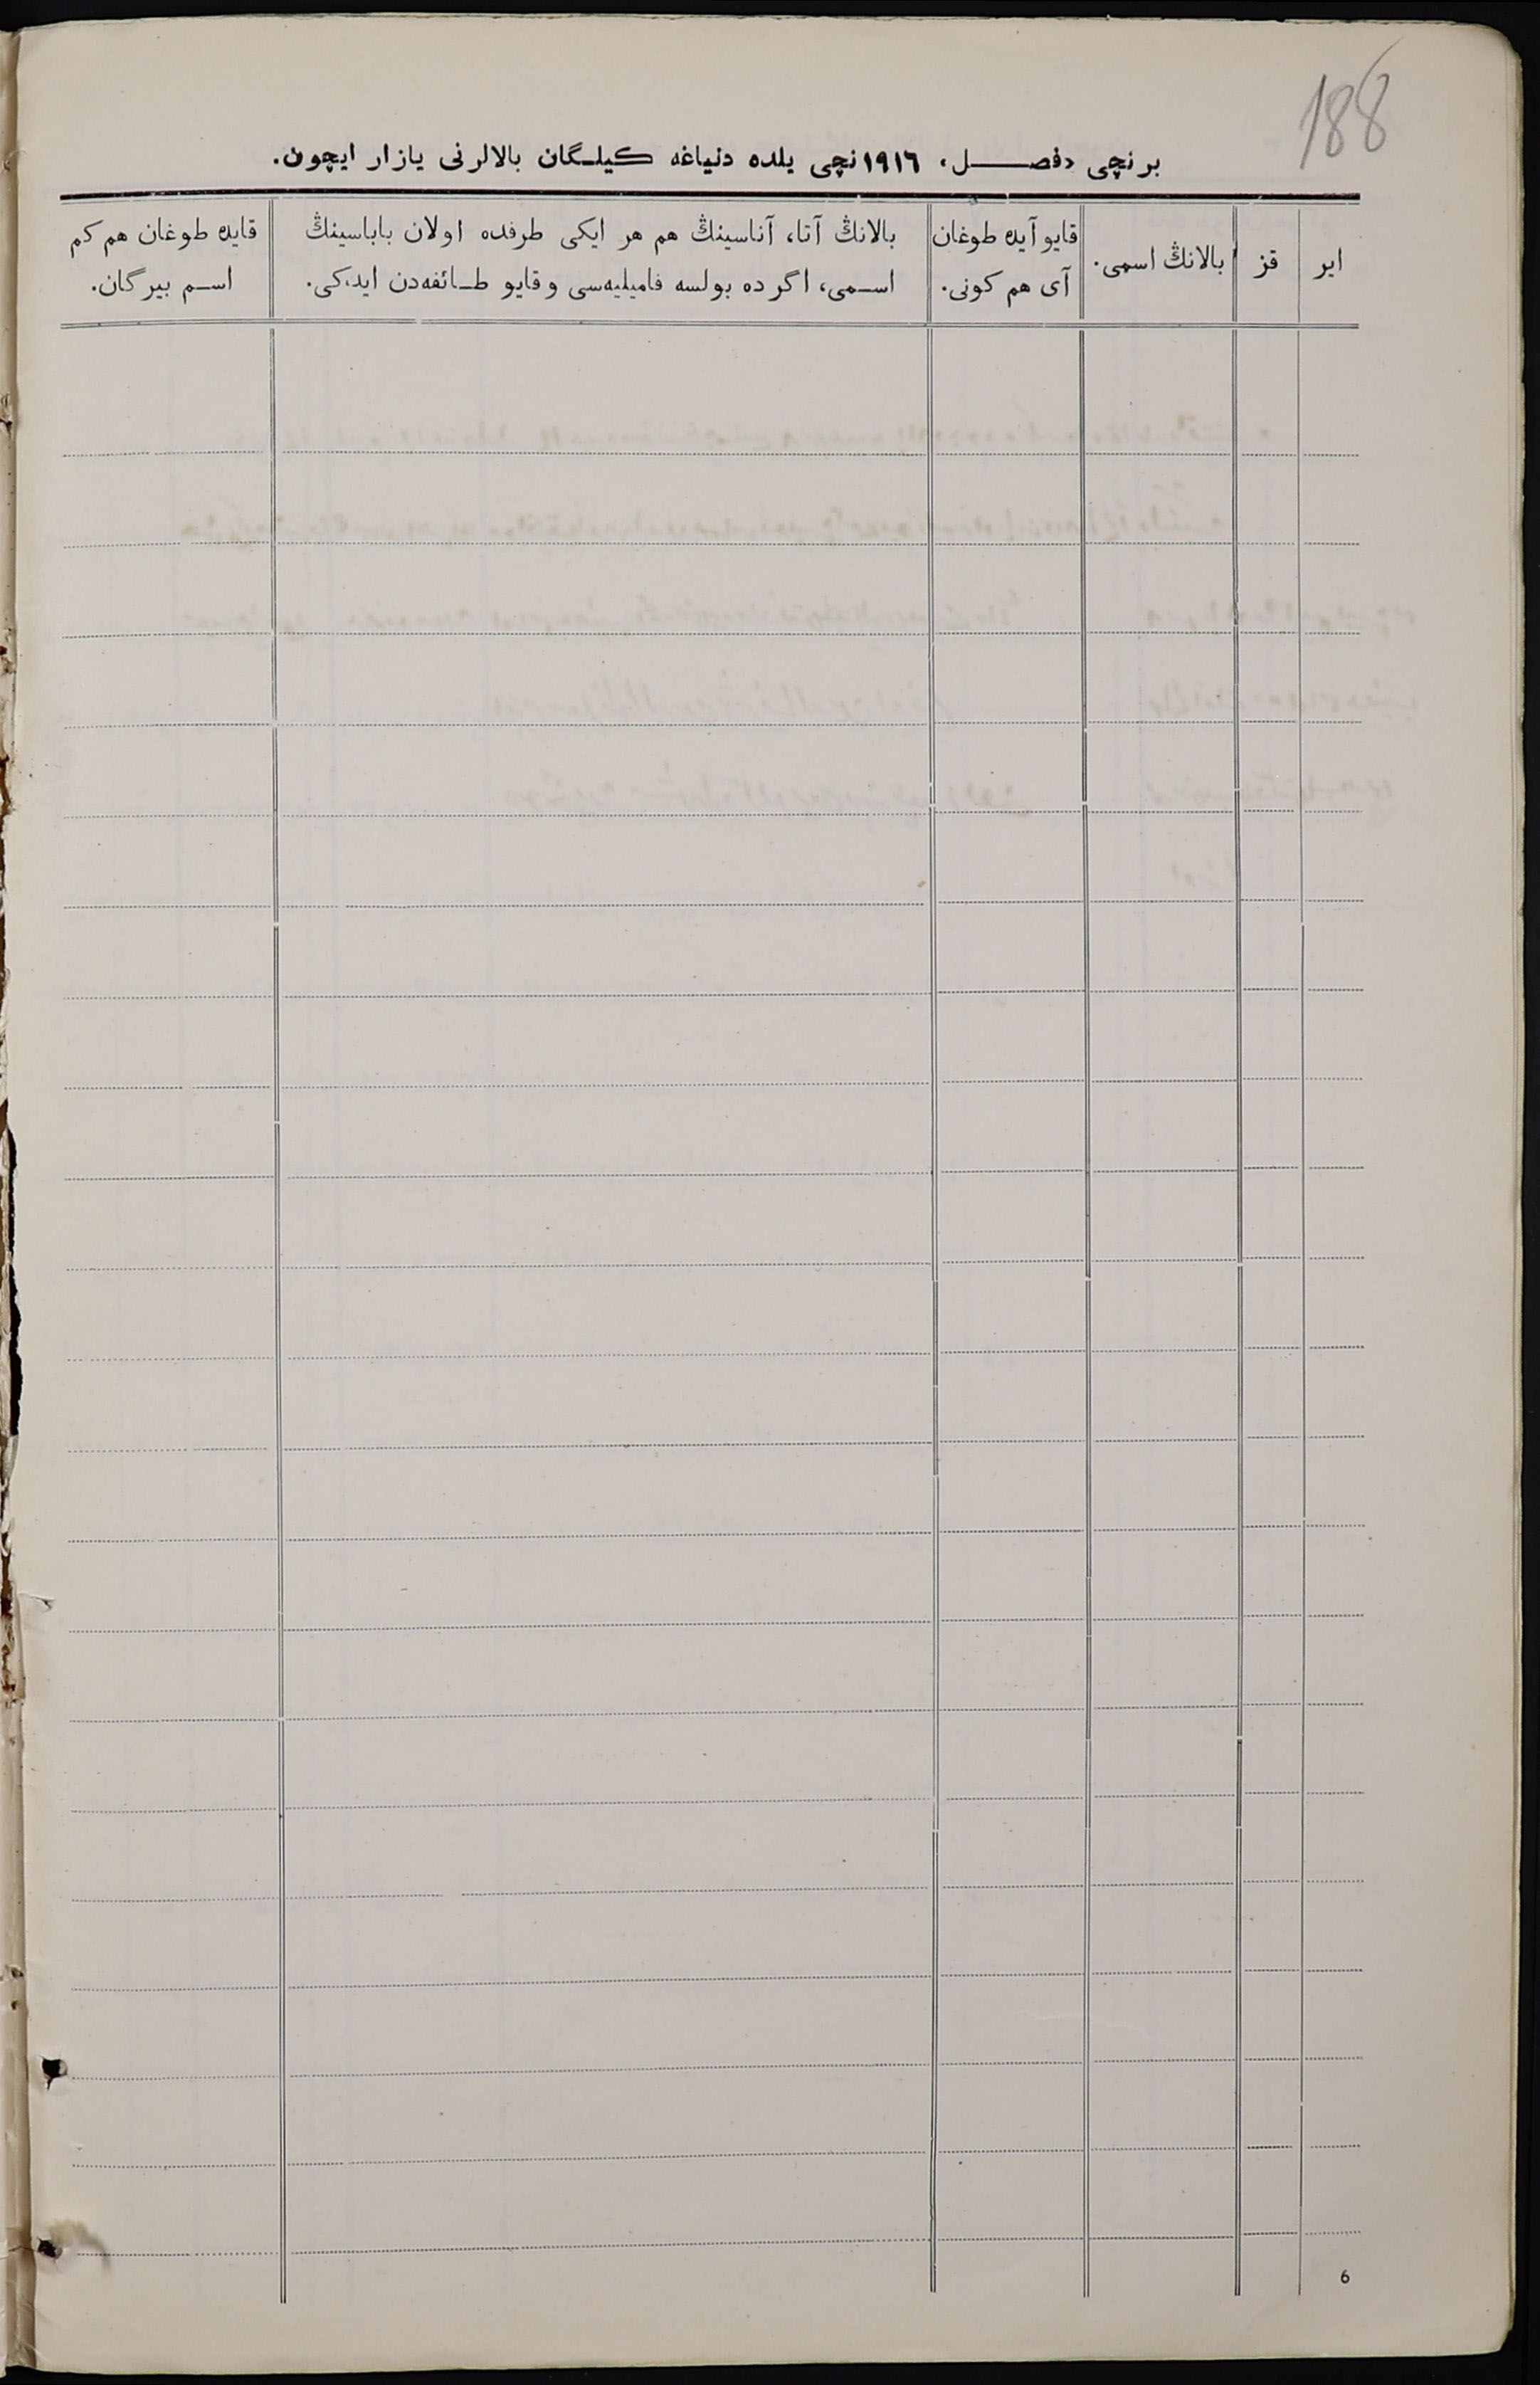 188
برنچی «فصل» ١٩١٦ نچی يلده دنیاغه کیلگان بالالرنی یازار ایچون.
ایر
قز
بالانڭ اسمی.
قایو آیده طوغان
آی هم کونی.
بالانڭ آتا، آناسینڭ هم هر ایکی طرفده اولان باباسینڭ
اسمی، اگر ده بولسه فامیلیه‌سی و قایو طائفه‌دن ایدکی.
قایده طوغان هم کم
اسم بیرگان.
6